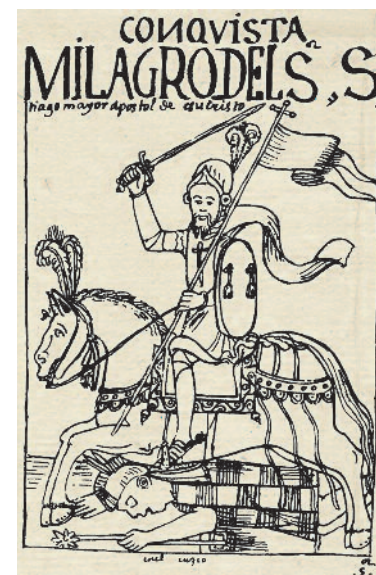 CONQVISTA
MILAGRO DEL S, S
tiago mayor apostol de
en el cuzco